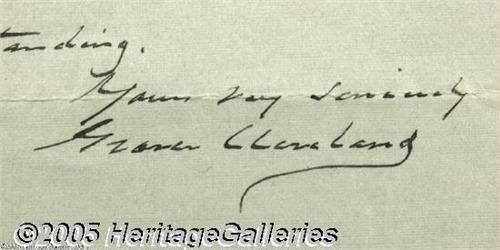 tanding.
Yours very sincerely
Grover Cleveland
©2005 HeritageGalleries